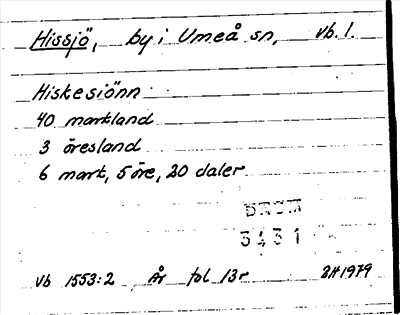 Hissjö, by i Umeå sn, vb. l.
Hiskesiönn
40 markland
3 öresland
6 mark, 5 öre, 20 daler
3431
Vb 1553:2 År fol 13r BH 1979